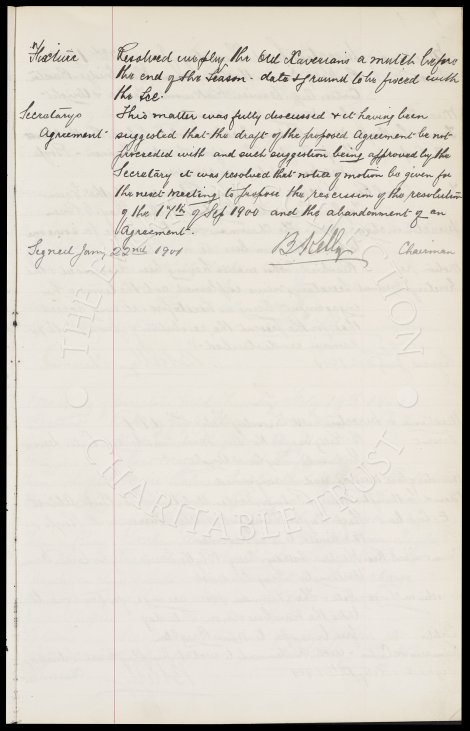 Fixture Resolved we play the Old Xaverians a match before
the end of the Season. date & ground to be fixed with
the Sec.
Secretarys This matter was fully discussed & it having been
Agreement suggested that the draft of the proposed Agreement be not
proceeded with and such suggestion being approved by the
Secretary it was resolved that notice of motion be given for
the next meeting to propose the rescission of the resolution
of the 17th of Sep 1900 and the abandonment of an
Agreement.
Signed Jany 22nd 1901 B Kelly Chairman
CHARITABLE TRUST